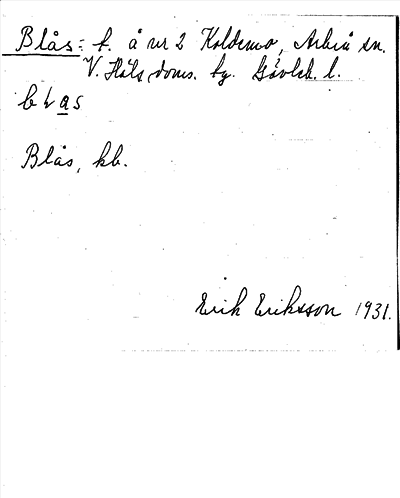 Blås: f. å nr 2 Koldemo, Arbrå sn.
V. Häls. doms. fg. Gävleb. l.
blas
Blås, kb.
Erik Eriksson 1931.